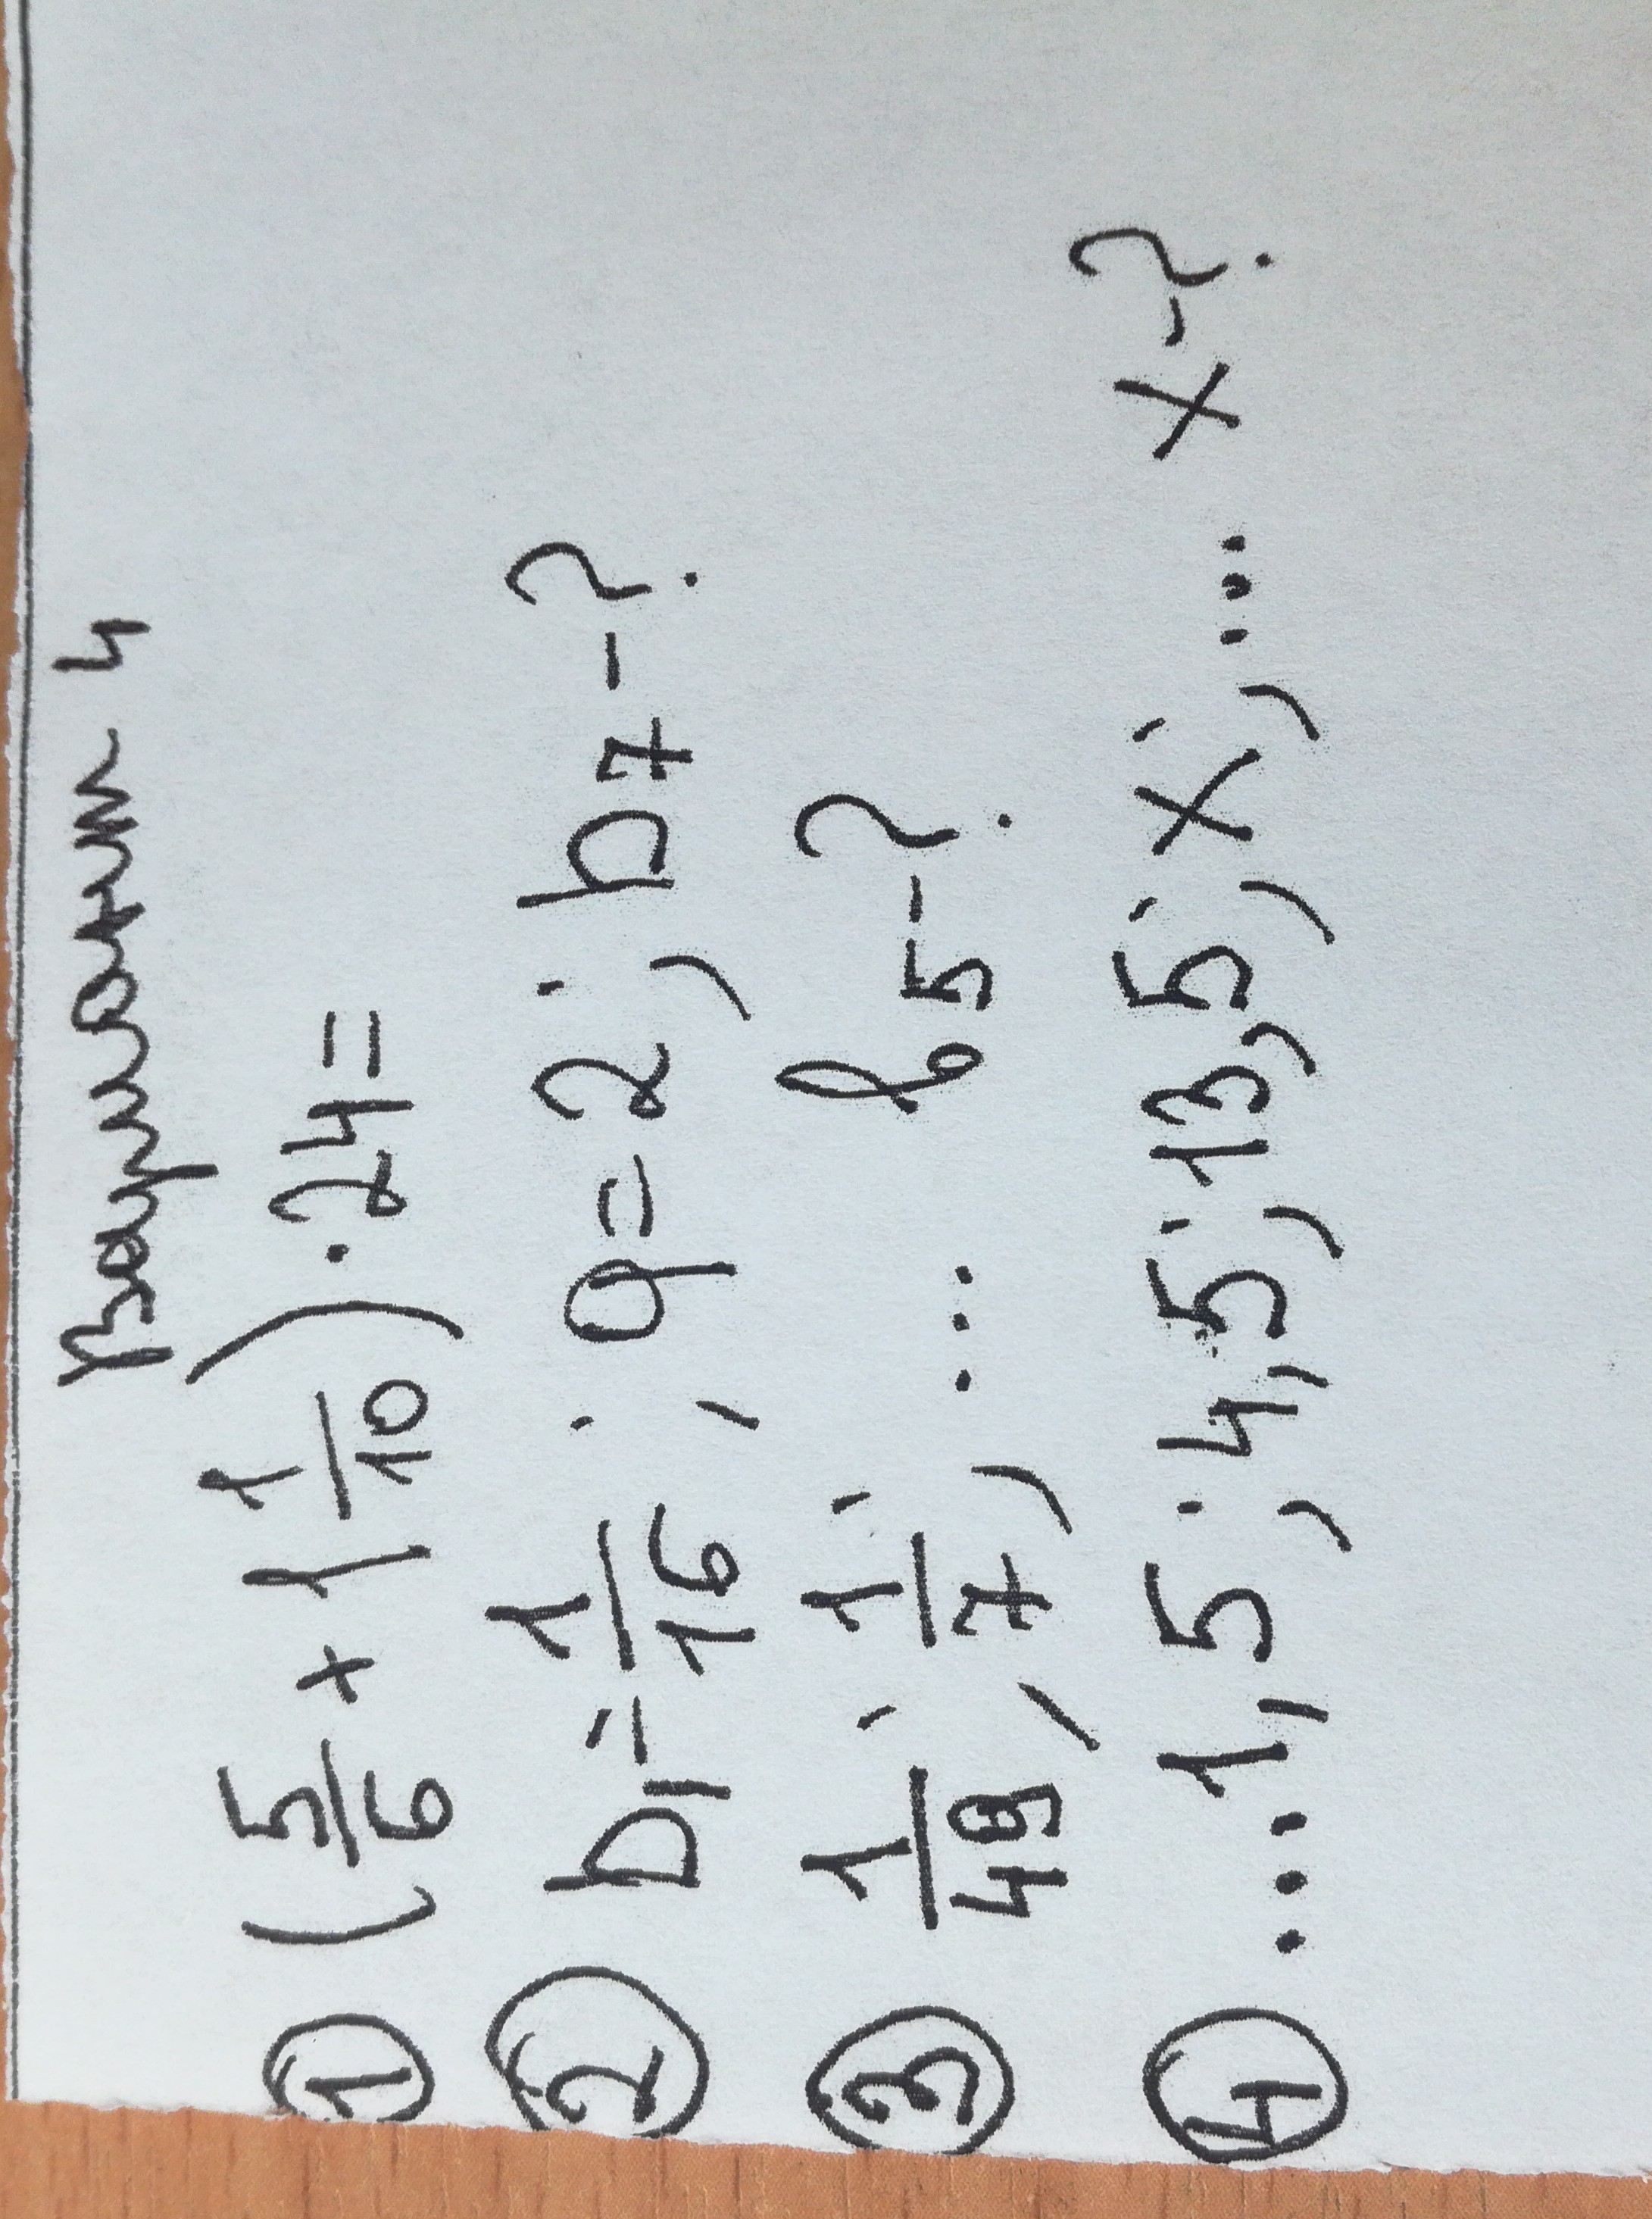 Вариант 4
① (5/6 + 1 1/10) · 24 =
② b1 = 1/16 ; q = 2 ; b7 - ?
③ 1/49 ; 1/7 ; ... b5 - ?
④ ... 1,5 ; 4,5 ; 13,5 ; x ; ... x - ?